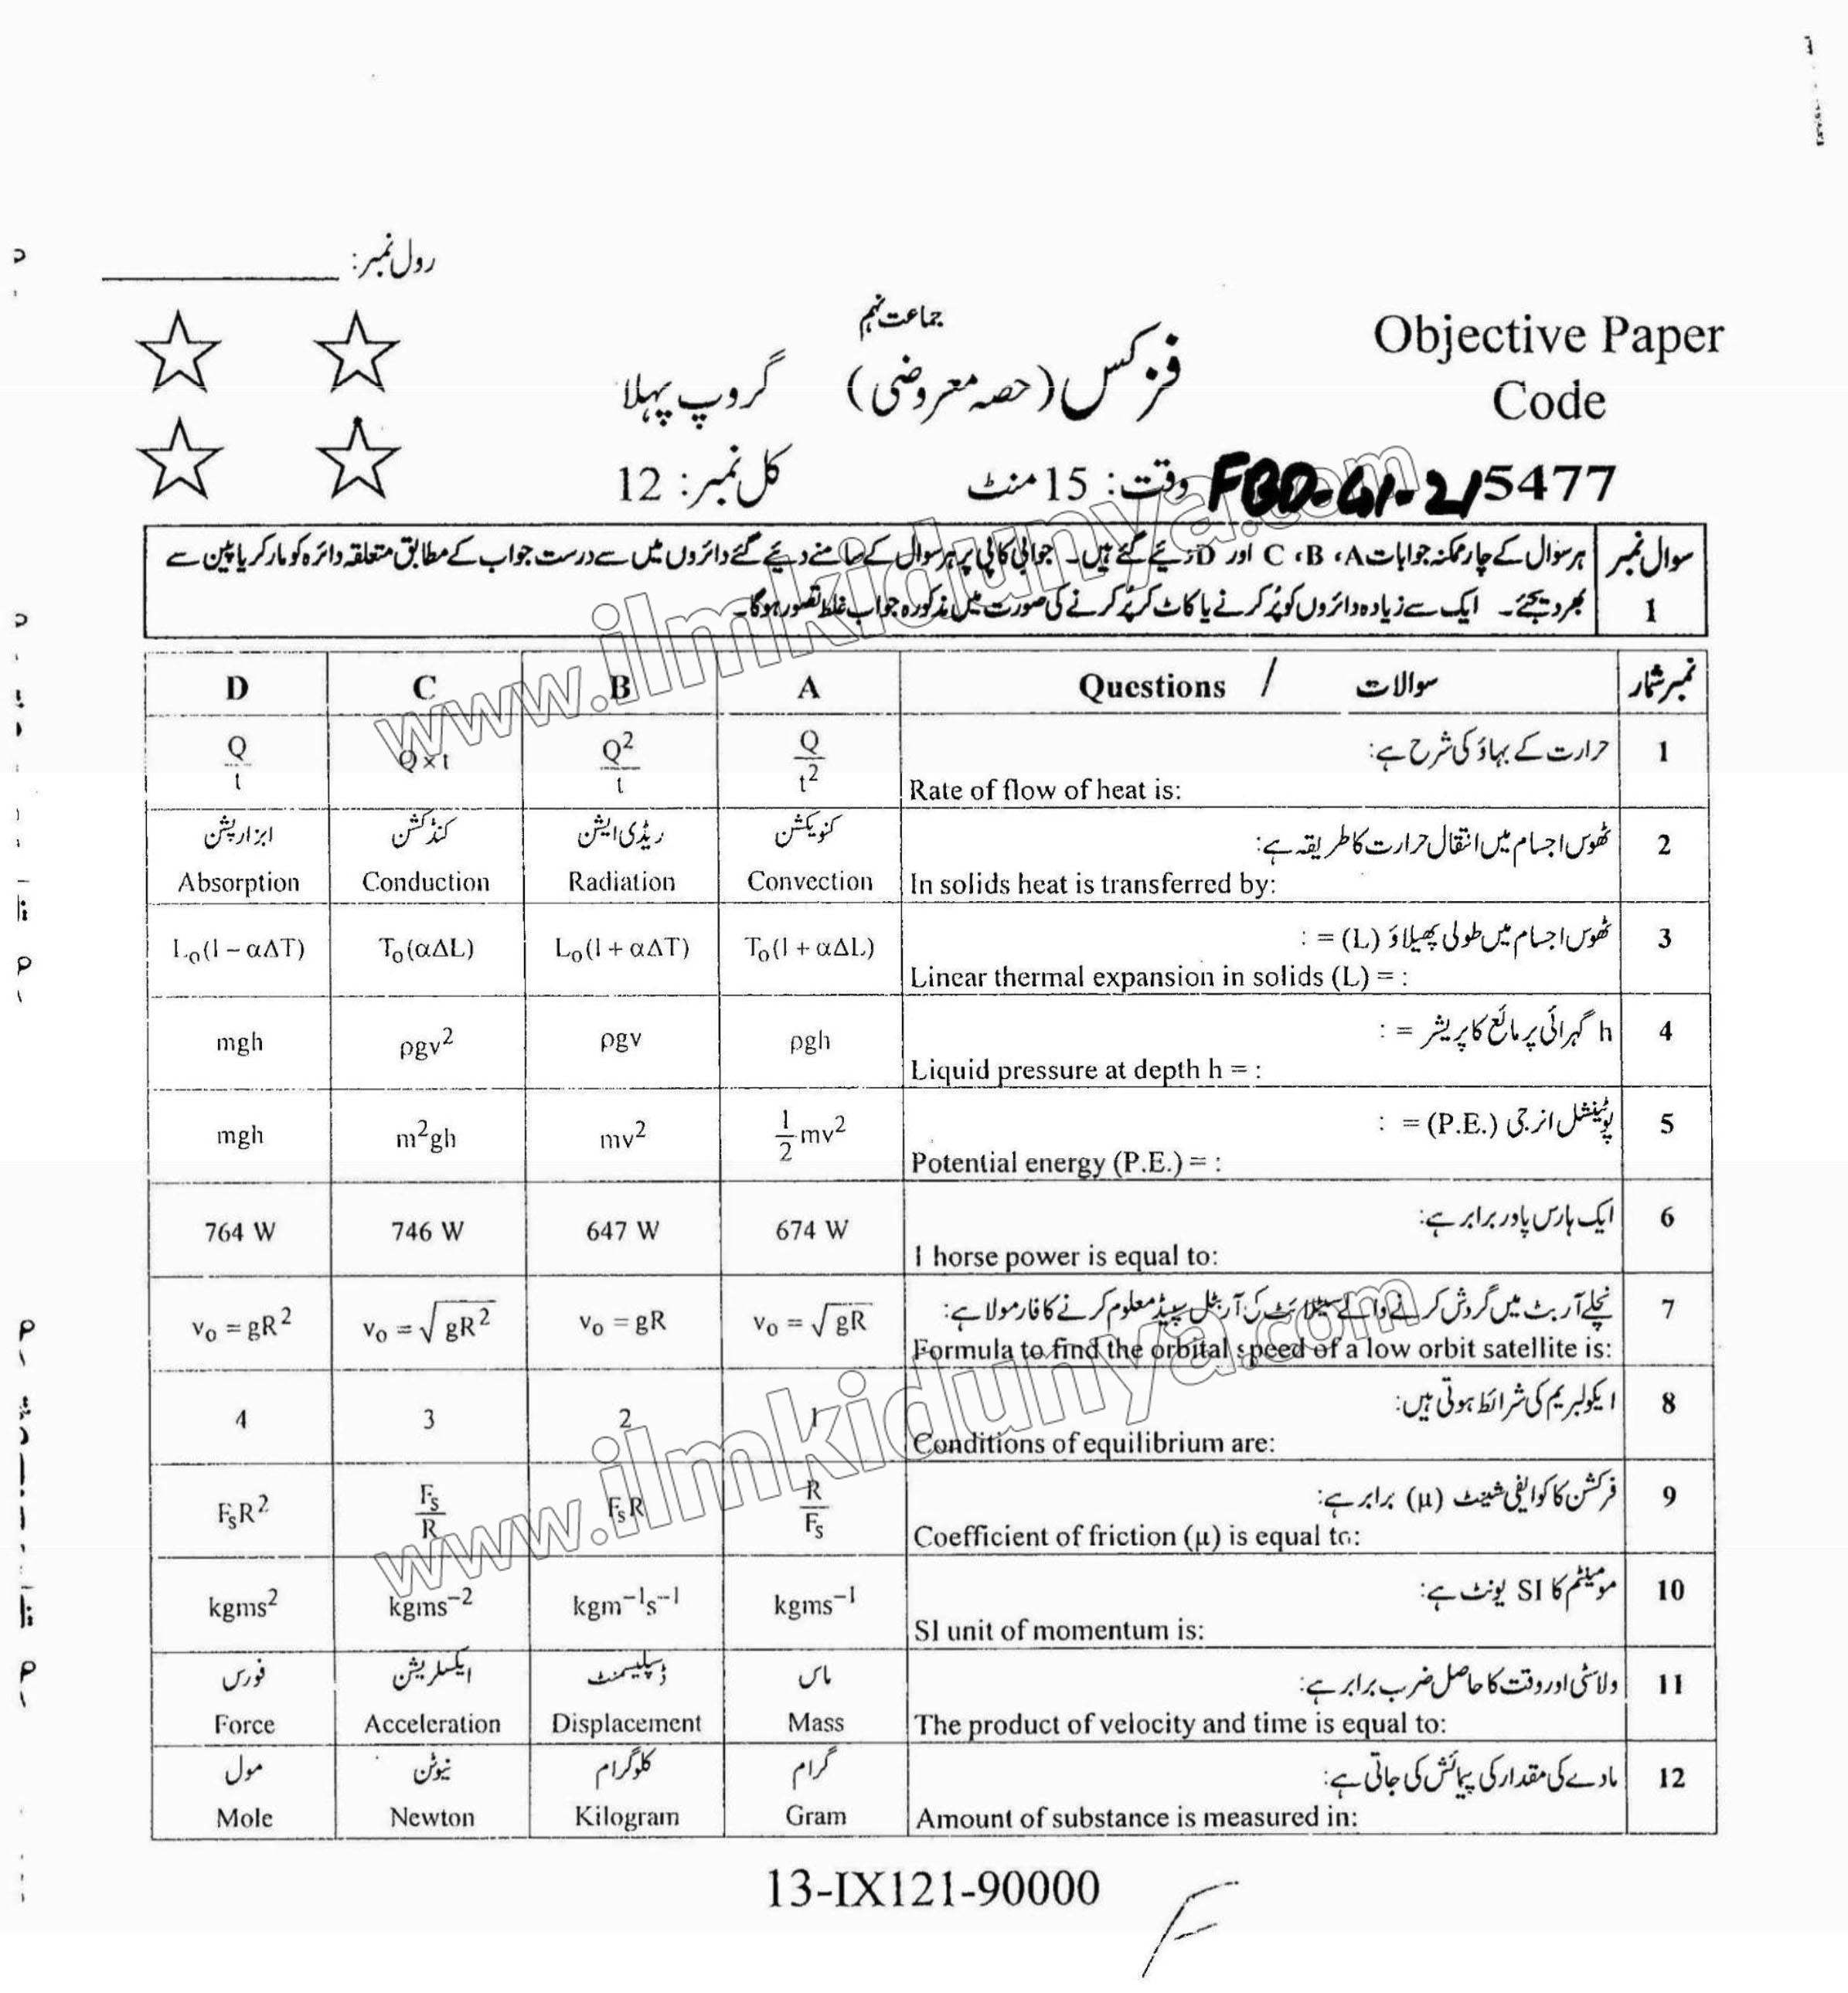 رول نمبر:
جماعت نہم
Objective Paper
Code
فزکس (حصہ معروضی) گروپ پہلا
وقت: 15 منٹ کل نمبر: 12
FBD-G1-21 5477
سوال نمبر 1
ہر سوال کے چار ممکنہ جوابات A، B، C اور D دئیے گئے ہیں۔ جوابی کاپی پر ہر سوال کے سامنے دئیے گئے دائروں میں سے درست جواب کے مطابق متعلقہ دائرہ کو مارکر یا پین سے
بھر دیجئے۔ ایک سے زیادہ دائروں کو پُر کرنے یا کاٹ کر پُر کرنے کی صورت میں مذکورہ جواب غلط تصور ہوگا۔
نمبر شمار سوالات / Questions A B C D
1 حرارت کے بہاؤ کی شرح ہے:
Rate of flow of heat is:
Q/t² Q²/t Q×t Q/t
2 ٹھوس اجسام میں انتقال حرارت کا طریقہ ہے:
کنویکشن ریڈی ایشن کنڈکشن ابزارپشن
In solids heat is transferred by:
Convection Radiation Conduction Absorption
3 ٹھوس اجسام میں طولی پھیلاؤ (L) = :
Linear thermal expansion in solids (L) = :
T₀(1 + αΔL) L₀(1 + αΔT) T₀(αΔL) L₀(1 − αΔT)
4 h گہرائی پر مائع کا پریشر = :
Liquid pressure at depth h = :
ρgh ρgv ρgv² mgh
5 پوٹینشل انرجی (P.E.) = :
Potential energy (P.E.) = :
½mv² mv² m²gh mgh
6 ایک ہارس پاور برابر ہے:
1 horse power is equal to:
674 W 647 W 746 W 764 W
7 نچلے آربٹ میں گردش کرنے والے سیٹلائٹ کی آربٹل سپیڈ معلوم کرنے کا فارمولا ہے:
Formula to find the orbital speed of a low orbit satellite is:
v₀ = √gR v₀ = gR v₀ = √gR² v₀ = gR²
8 ایکولبریم کی شرائط ہوتی ہیں:
Conditions of equilibrium are:
1 2 3 4
9 فرکشن کا کوایفی شینٹ (μ) برابر ہے:
Coefficient of friction (μ) is equal to:
R/Fₛ FₛR Fₛ/R FₛR²
10 مومینٹم کا SI یونٹ ہے:
SI unit of momentum is:
kgms⁻¹ kgm⁻¹s⁻¹ kgms⁻² kgms²
11 ولاسٹی اور وقت کا حاصل ضرب برابر ہے:
ماس ڈسپلیسمنٹ ایکسلریشن فورس
The product of velocity and time is equal to:
Mass Displacement Acceleration Force
12 مادے کی مقدار کی پیمائش کی جاتی ہے:
گرام کلوگرام نیوٹن مول
Amount of substance is measured in:
Gram Kilogram Newton Mole
13-IX121-90000
F
www.ilmkidunya.com
www.ilmkidunya.com